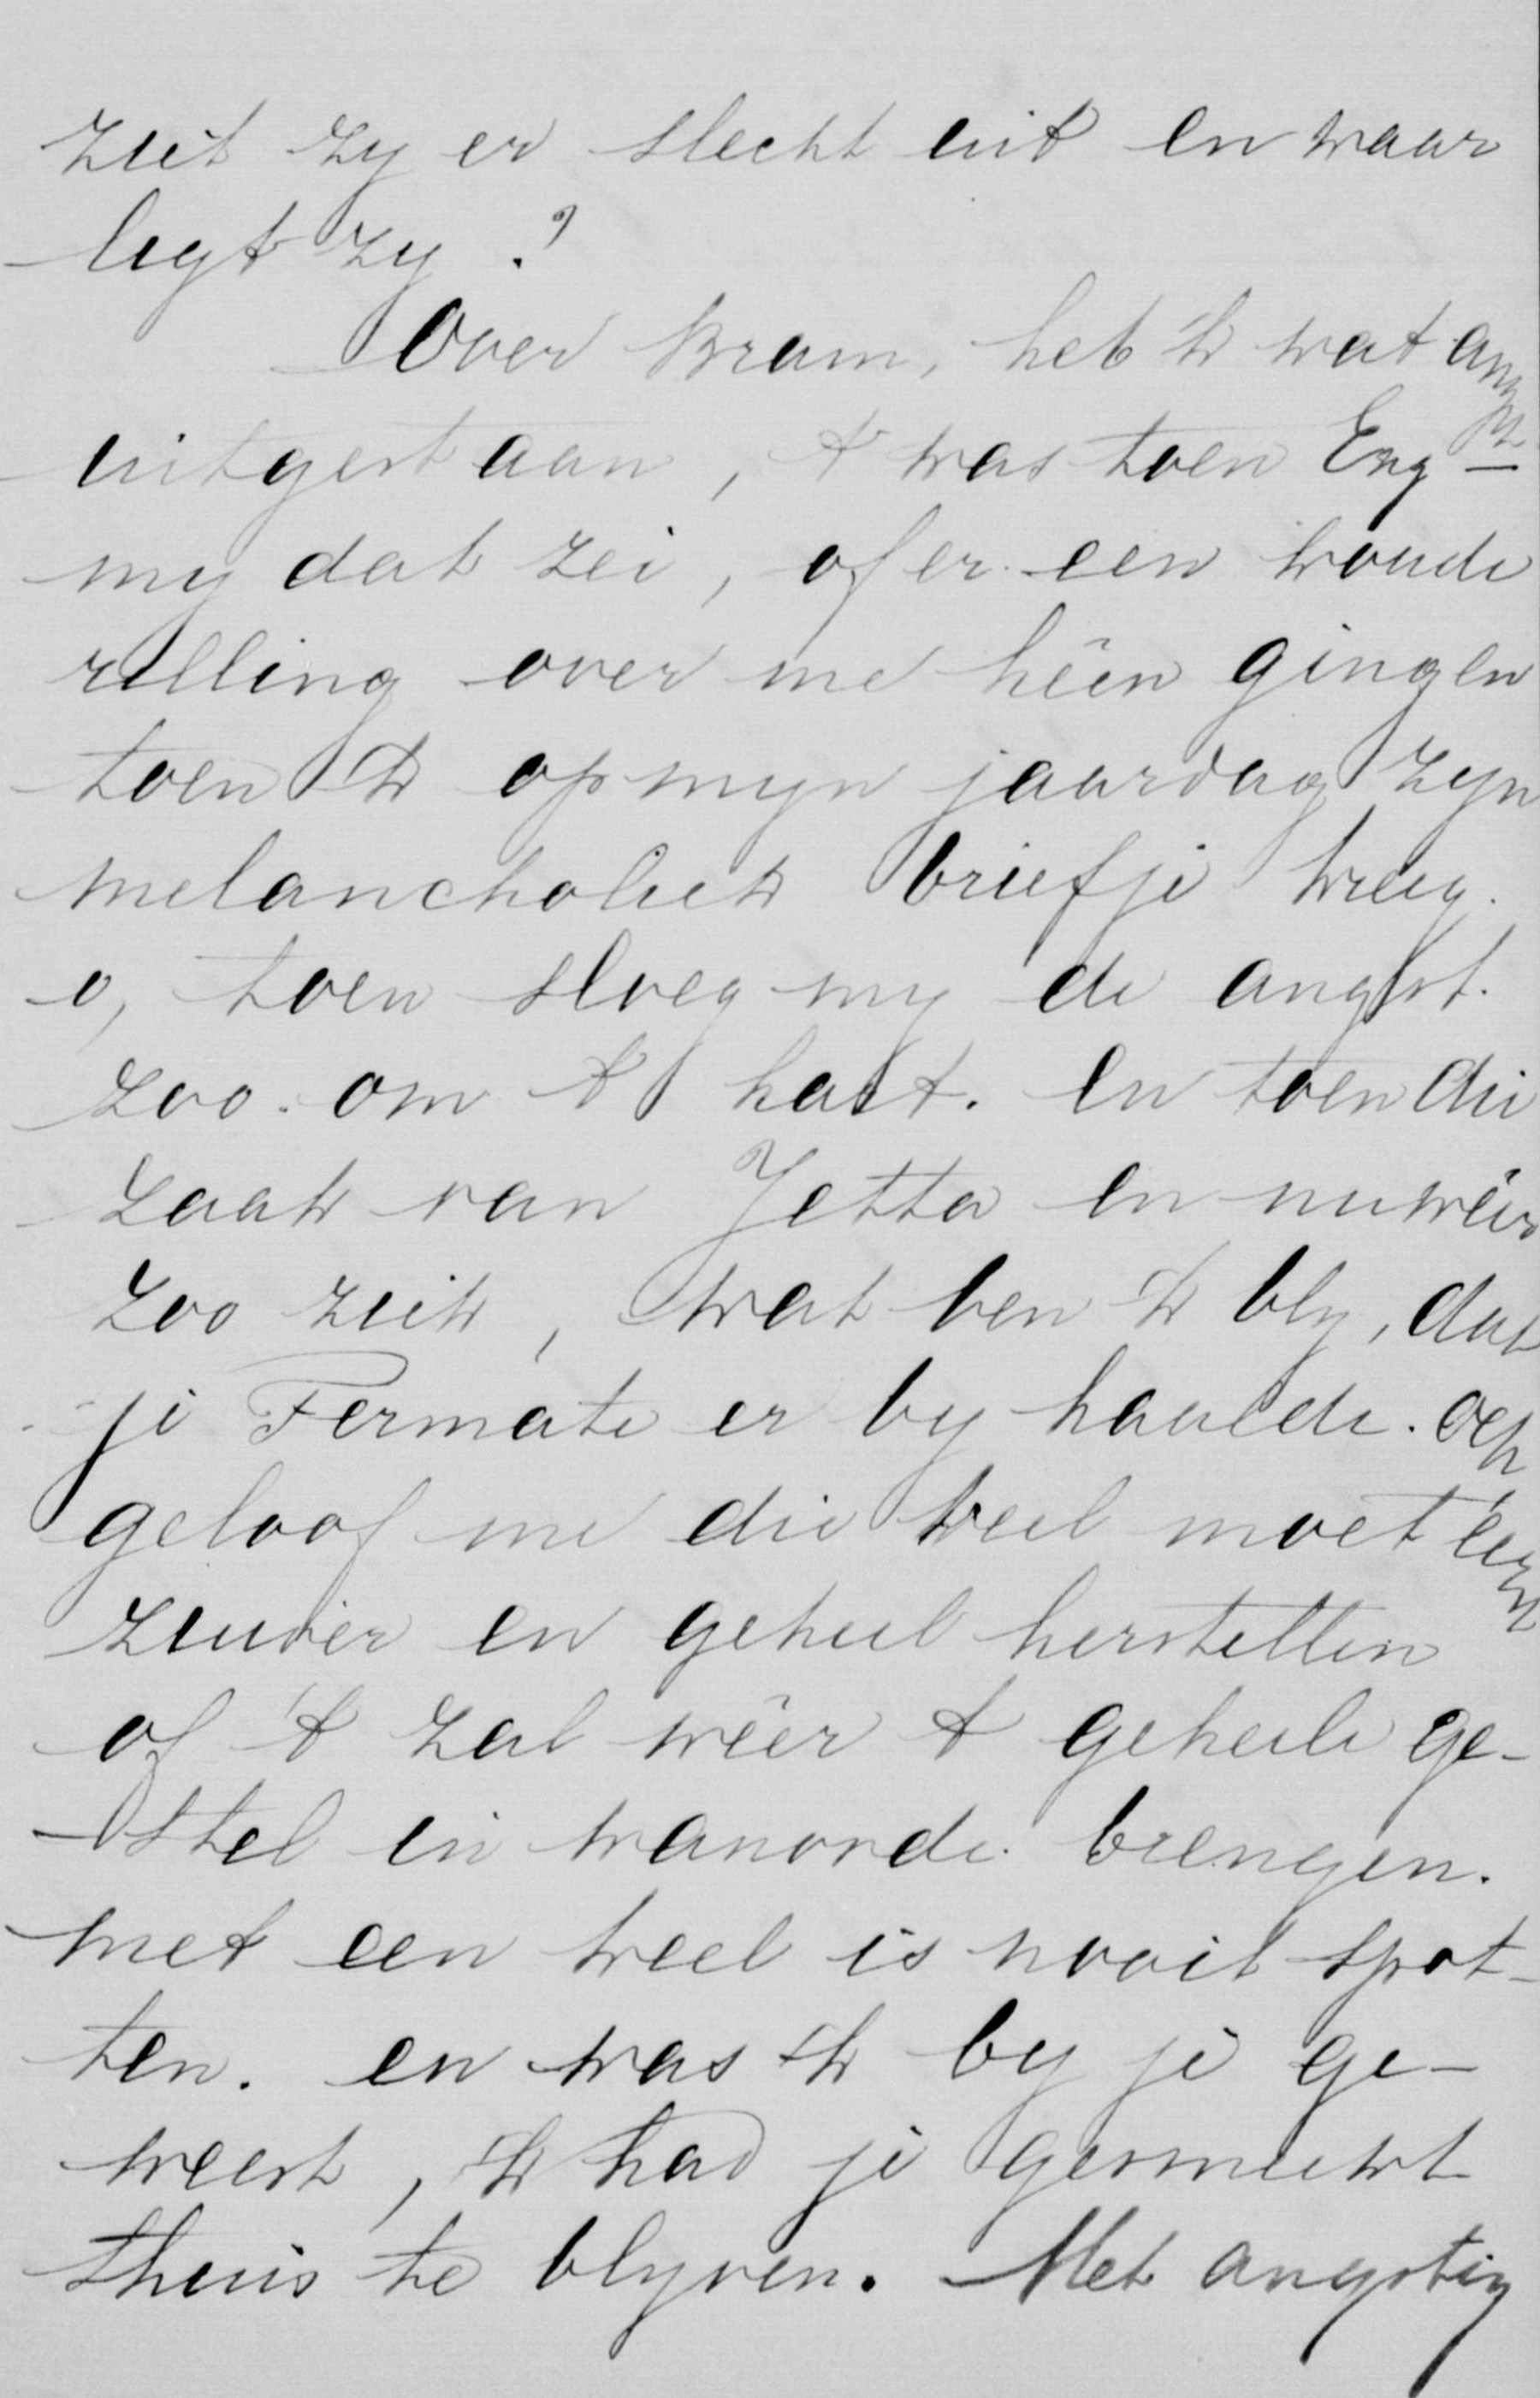 ziet zy er slecht uit en waar
ligt zy?
Over Bram, heb 'k wat angst
uitgestaan, 't was toen Eng –
my dat zei, of er een koude
rilling over me hêen gingen
toen 'k op myn jaardag zyn
melancholiek briefje kreeg.
o, toen sloeg my de angst.
zoo om 't hart. En toen die
zaak van Jetta en nu wêer
zoo ziek, wat ben 'k bly, dat
je Fermate er by haalde. och
geloof me die keel moet eerst
zuiver en geheel herstellen
of 't zal wêer 't geheele ge-
stel in wanorde brengen.
met een keel is nooit spot-
ten. en was 'k by je ge-
weest, 'k had je gesmeekt
thuis te blyven. Met angstig